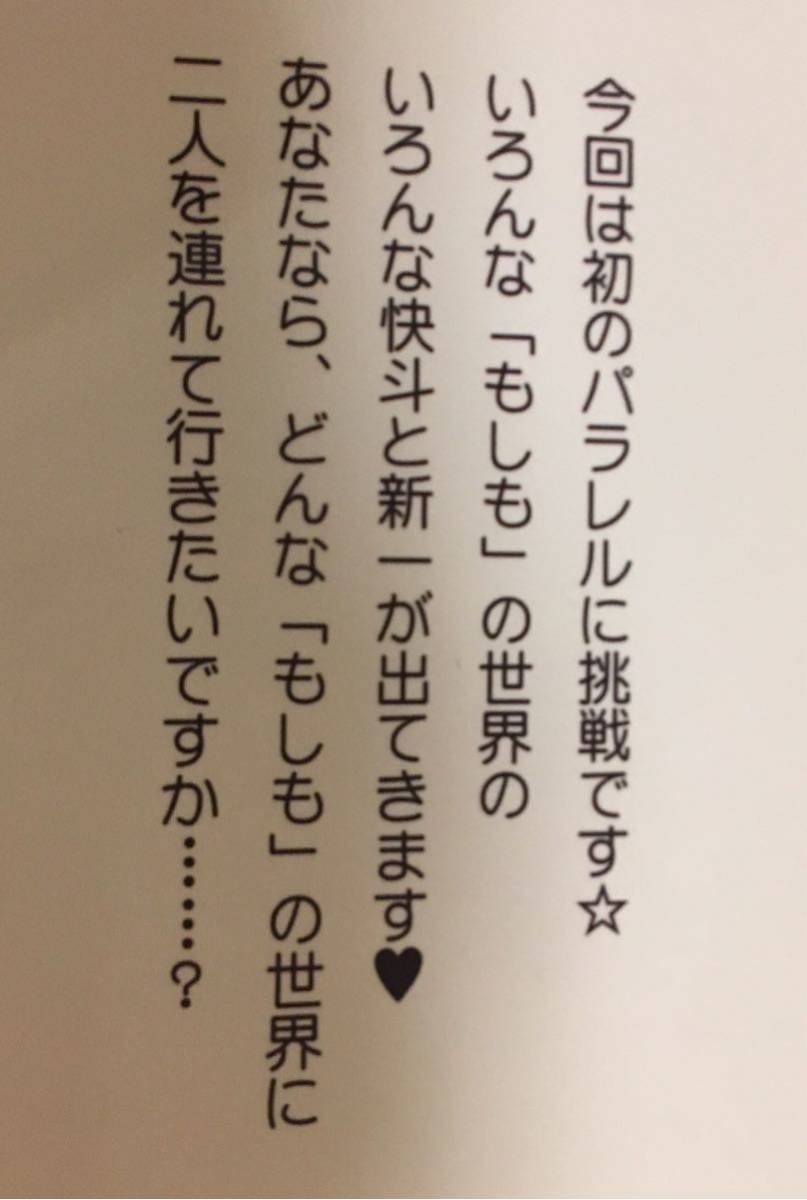 今回は初のパラレルに挑戦です☆
いろんな「もしも」の世界の
いろんな快斗と新一が出てきます♥
あなたなら、どんな「もしも」の世界に
二人を連れて行きたいですか……？